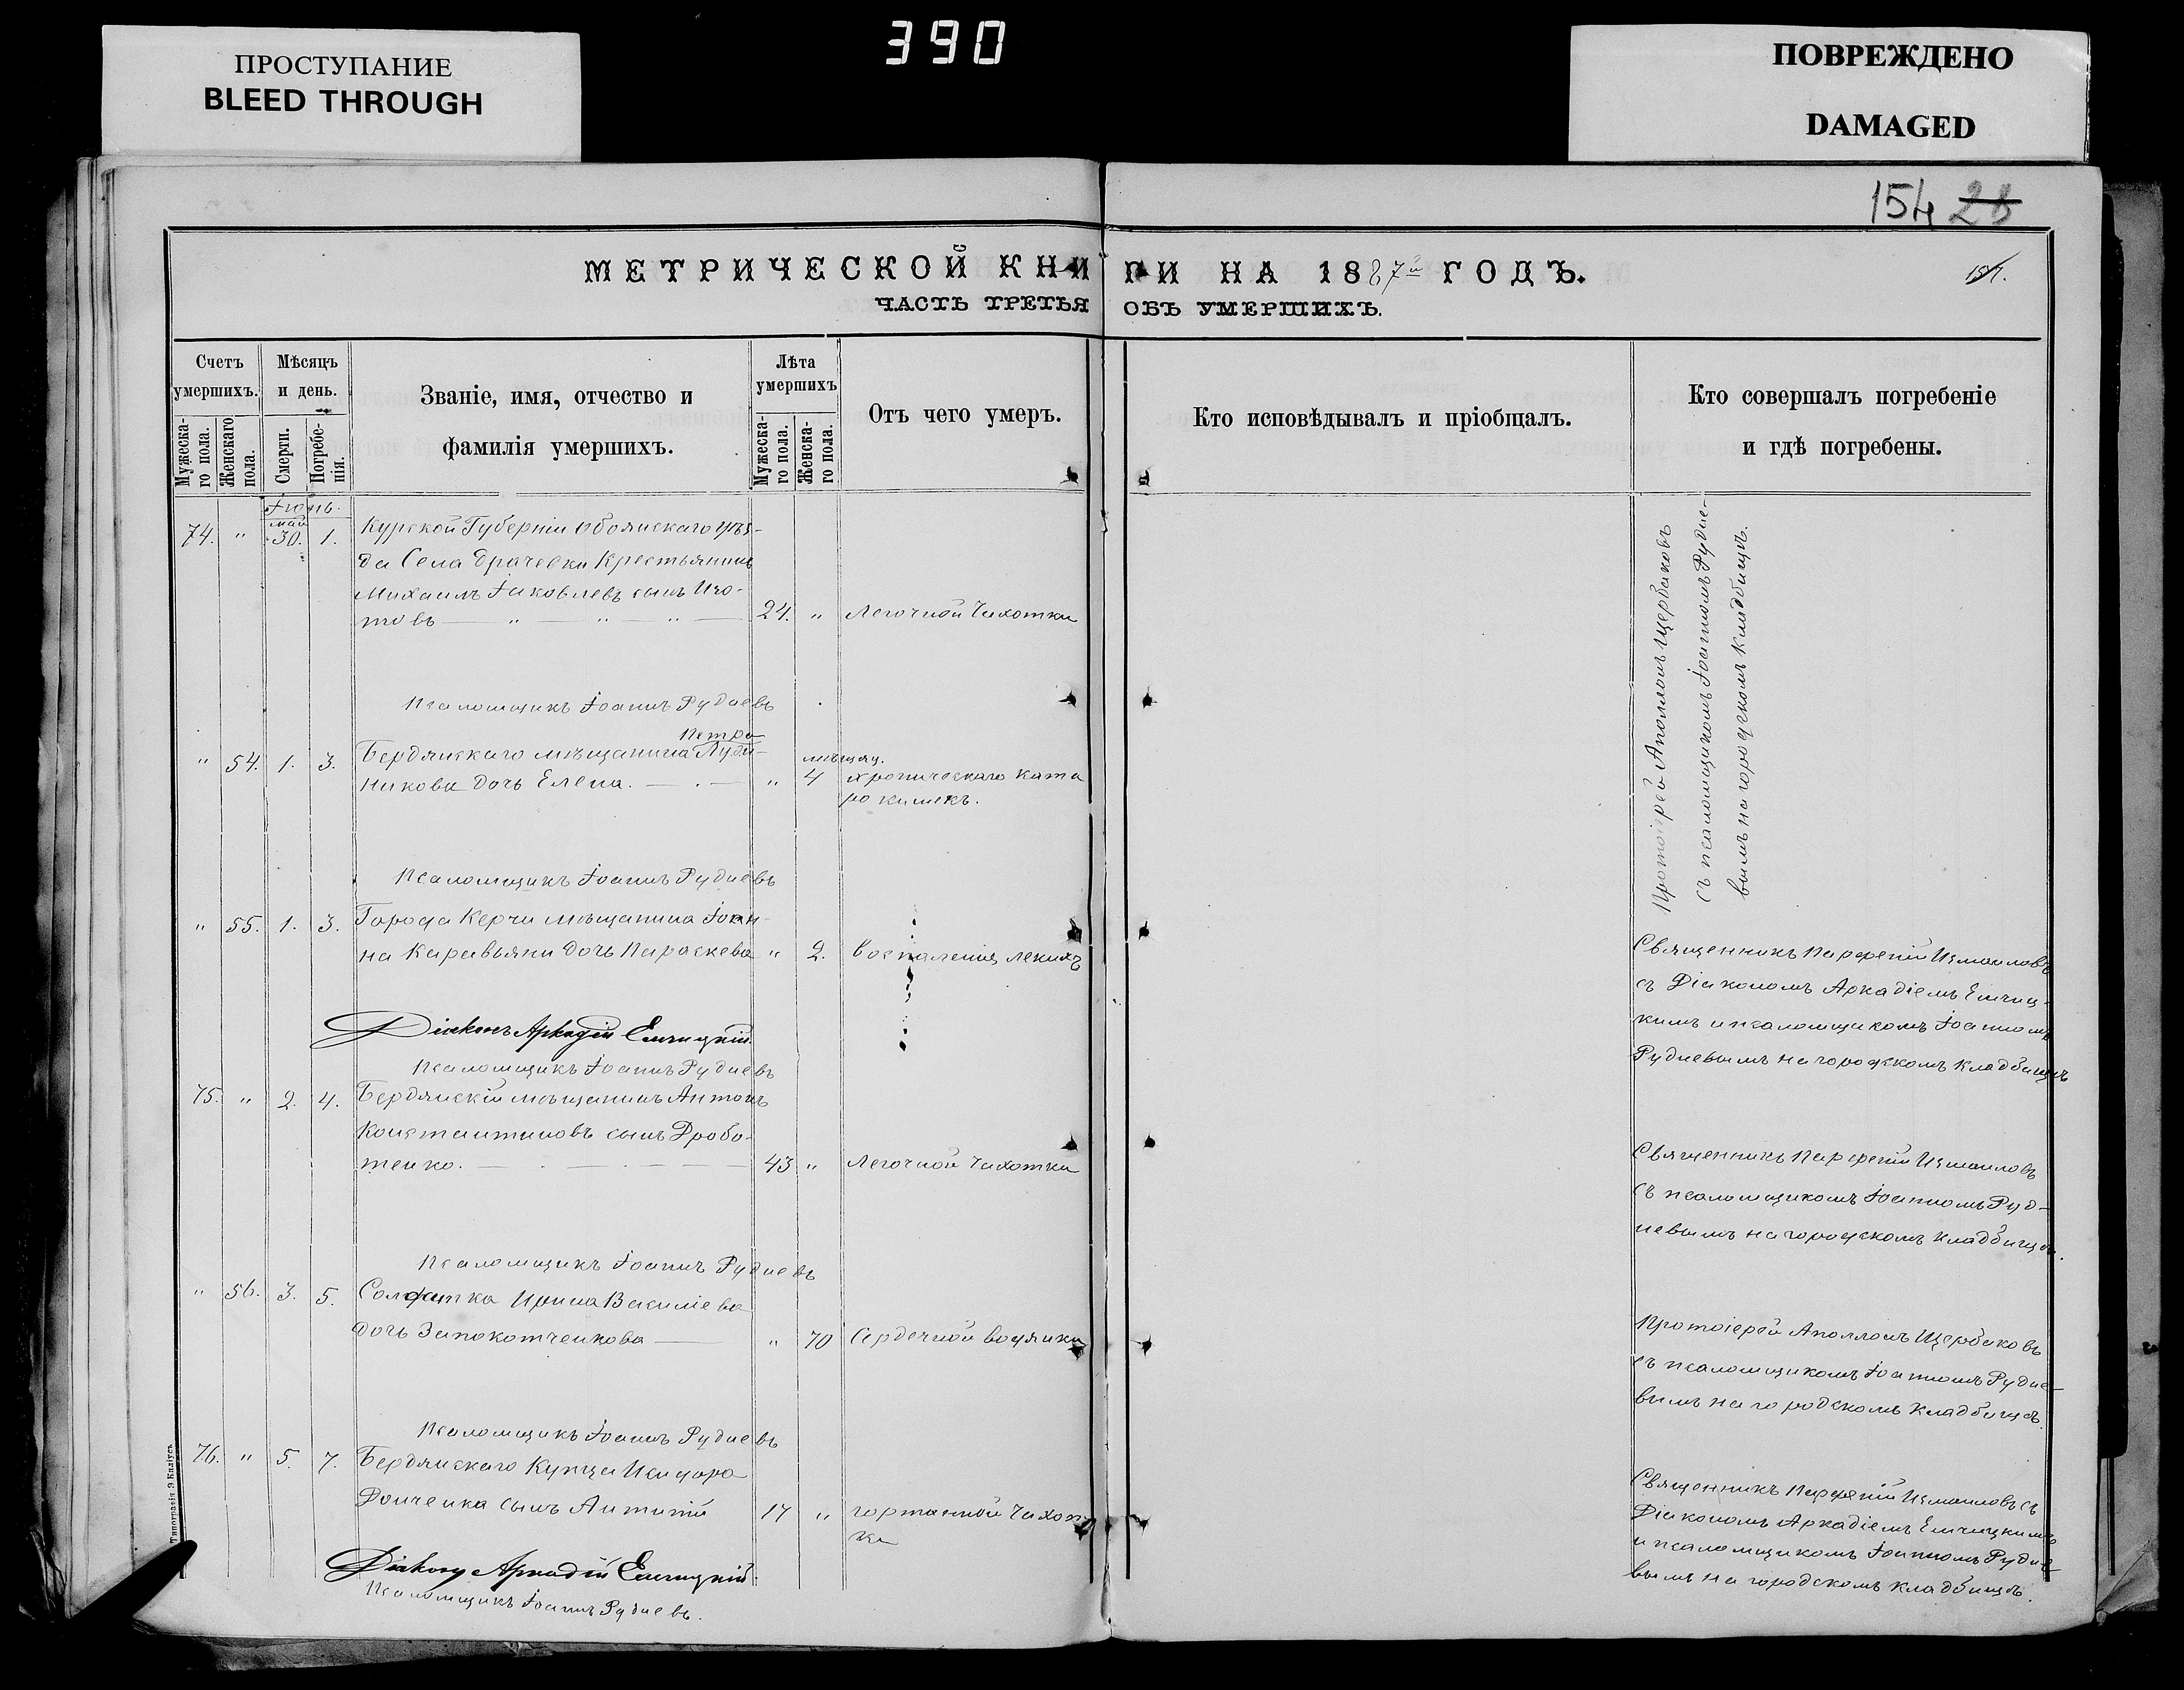 ПРОСТУПАНИЕ
BLEED THROUGH
390
ПОВРЕЖДЕНО
DAMAGED
154 28
МЕТРИЧЕСКОЙ КНИГИ НА 1887й ГОДЪ.
154.
ЧАСТЬ ТРЕТЬЯ ОБЪ УМЕРШИХЪ.
Счетъ умершихъ.
Мужеска-го пола.
Женскаго пола.
Мѣсяцъ и день.
Смерти.
Погребе-нія.
Званіе, имя, отчество и
фамилія умершихъ.
Лѣта умершихъ
Мужеска-го пола.
Женска-го пола.
Отъ чего умеръ.
Кто исповѣдывалъ и пріобщалъ.
Кто совершалъ погребеніе
и гдѣ погребены.
Іюнь.
май
74. " 30. 1. Курской Губерніи Обоянскаго уѣз-
да Села Драчевки Крестьянинъ
Михаилъ Іаковлевъ сынъ Изо-
товъ — " — " — " — 24. " Легочной Чахотки
Псаломщикъ Іоаннъ Рудневъ
Протоіерей Аполлонъ Щербаковъ
съ псаломщикомъ Іоанномъ Рудне-
вымъ на городскомъ кладбищѣ.
Петра
" 54. 1. 3. Бердянскаго мѣщанина
никова дочь Елена. — . — " 4 мѣсяц. хроническаго ката
ра кишекъ.
Псаломщикъ Іоаннъ Рудневъ
" 55. 1. 3. Города Керчи мѣщанина Іоан-
на Каравьяни дочь Параскева " 2. воспаленія легкихъ
Священникъ Парфеній Измаиловъ
съ Діакономъ Аркадіемъ Емчиц-
кимъ и псаломщикомъ Іоанномъ
Рудневымъ на городскомъ кладбищѣ
Діаконъ Аркадій Емчицкій.
Псаломщикъ Іоаннъ Рудневъ
75. " 2. 4. Бердянскій мѣщанинъ Антонъ
Константиновъ сынъ Дробо-
тенко. — . — . — 43 " Легочной Чахотки
Священникъ Парфеній Измаиловъ
съ псаломщикомъ Іоанномъ Руд-
невымъ на городскомъ кладбищѣ.
Псаломщикъ Іоаннъ Рудневъ
" 56. 3. 5. Солдатка Ирина Василіева
дочь Запокотченкова — " 70 Сердечной водянки
Протоіерей Аполлонъ Щербаковъ
съ псаломщикомъ Іоанномъ Рудне-
вымъ на городскомъ кладбищѣ.
Псаломщикъ Іоаннъ Рудневъ
76. " 5. 7. Бердянскаго Купца Исидора
Донченка сынъ 17 " гортанной Чахот-
ки
Священникъ Парфеній Измаиловъ съ
Діакономъ Аркадіемъ Емчицкимъ
и псаломщикомъ Іоанномъ Рудне-
вымъ на городскомъ кладбищѣ.
Діаконъ Аркадій Емчицкій.
Псаломщикъ Іоаннъ Рудневъ.